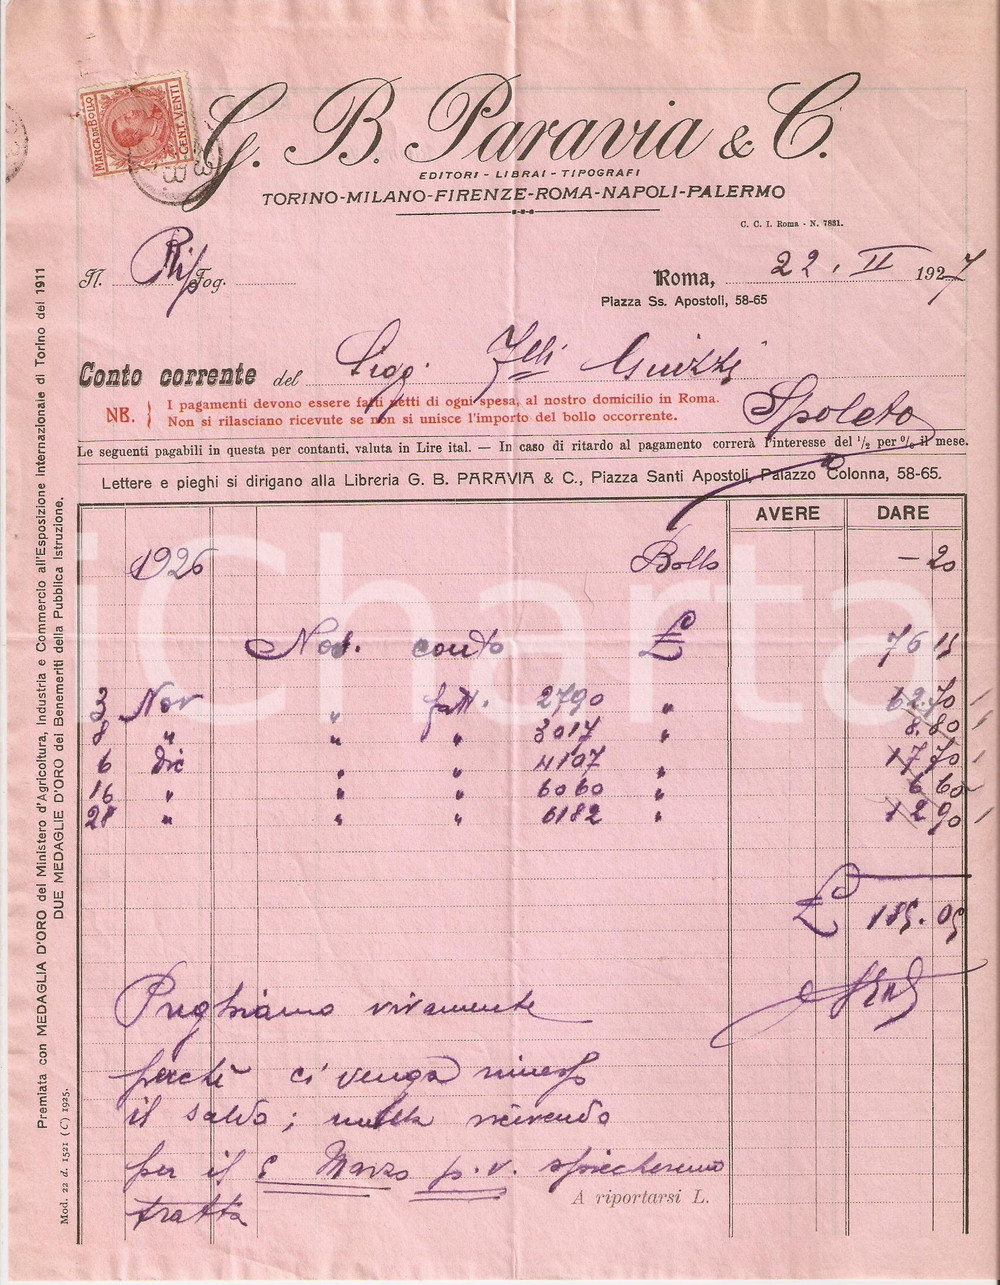 MARCA DA BOLLO
CENT. VENTI
G. B. Paravia & C.
EDITORI - LIBRAI - TIPOGRAFI
TORINO-MILANO-FIRENZE-ROMA-NAPOLI-PALERMO
C. C. I. Roma - N. 7831.
N. Fog.
Roma, 22. II 1927
Piazza Ss. Apostoli, 58-65
Conto corrente del Sigg. Flli
Spoleto
NB. } I pagamenti devono essere fatti netti di ogni spesa, al nostro domicilio in Roma.
Non si rilasciano ricevute se non si unisce l'importo del bollo occorrente.
Le seguenti pagabili in questa per contanti, valuta in Lire ital. — In caso di ritardo al pagamento correrà l'interesse del 1/2 per % il mese.
Lettere e pieghi si dirigano alla Libreria G. B. PARAVIA & C., Piazza Santi Apostoli, Palazzo Colonna, 58-65.
AVERE DARE
1926 Bollo — 20
Ns/. conto £ 76 15
2 Nov " fatt. 2790 " 62.70
8 " " " 3017 " 8.80
6 dic " " 4107 " 17 70
16 " " " 6060 " 6 60
28 " " " 6182 " 12 90
£ 185.05
Preghiamo vivamente
perchè ci venga rimesso
il saldo; nulla ricevendo
per il 5 Marzo p.v. spiccheremo
tratta
A riportarsi L.
Premiata con MEDAGLIA D'ORO del Ministero d'Agricoltura, Industria e Commercio all'Esposizione Internazionale di Torino del 1911
DUE MEDAGLIE D'ORO dei Benemeriti della Pubblica Istruzione.
Mod. 22 d. 1521 (C) 1925.
iCharta